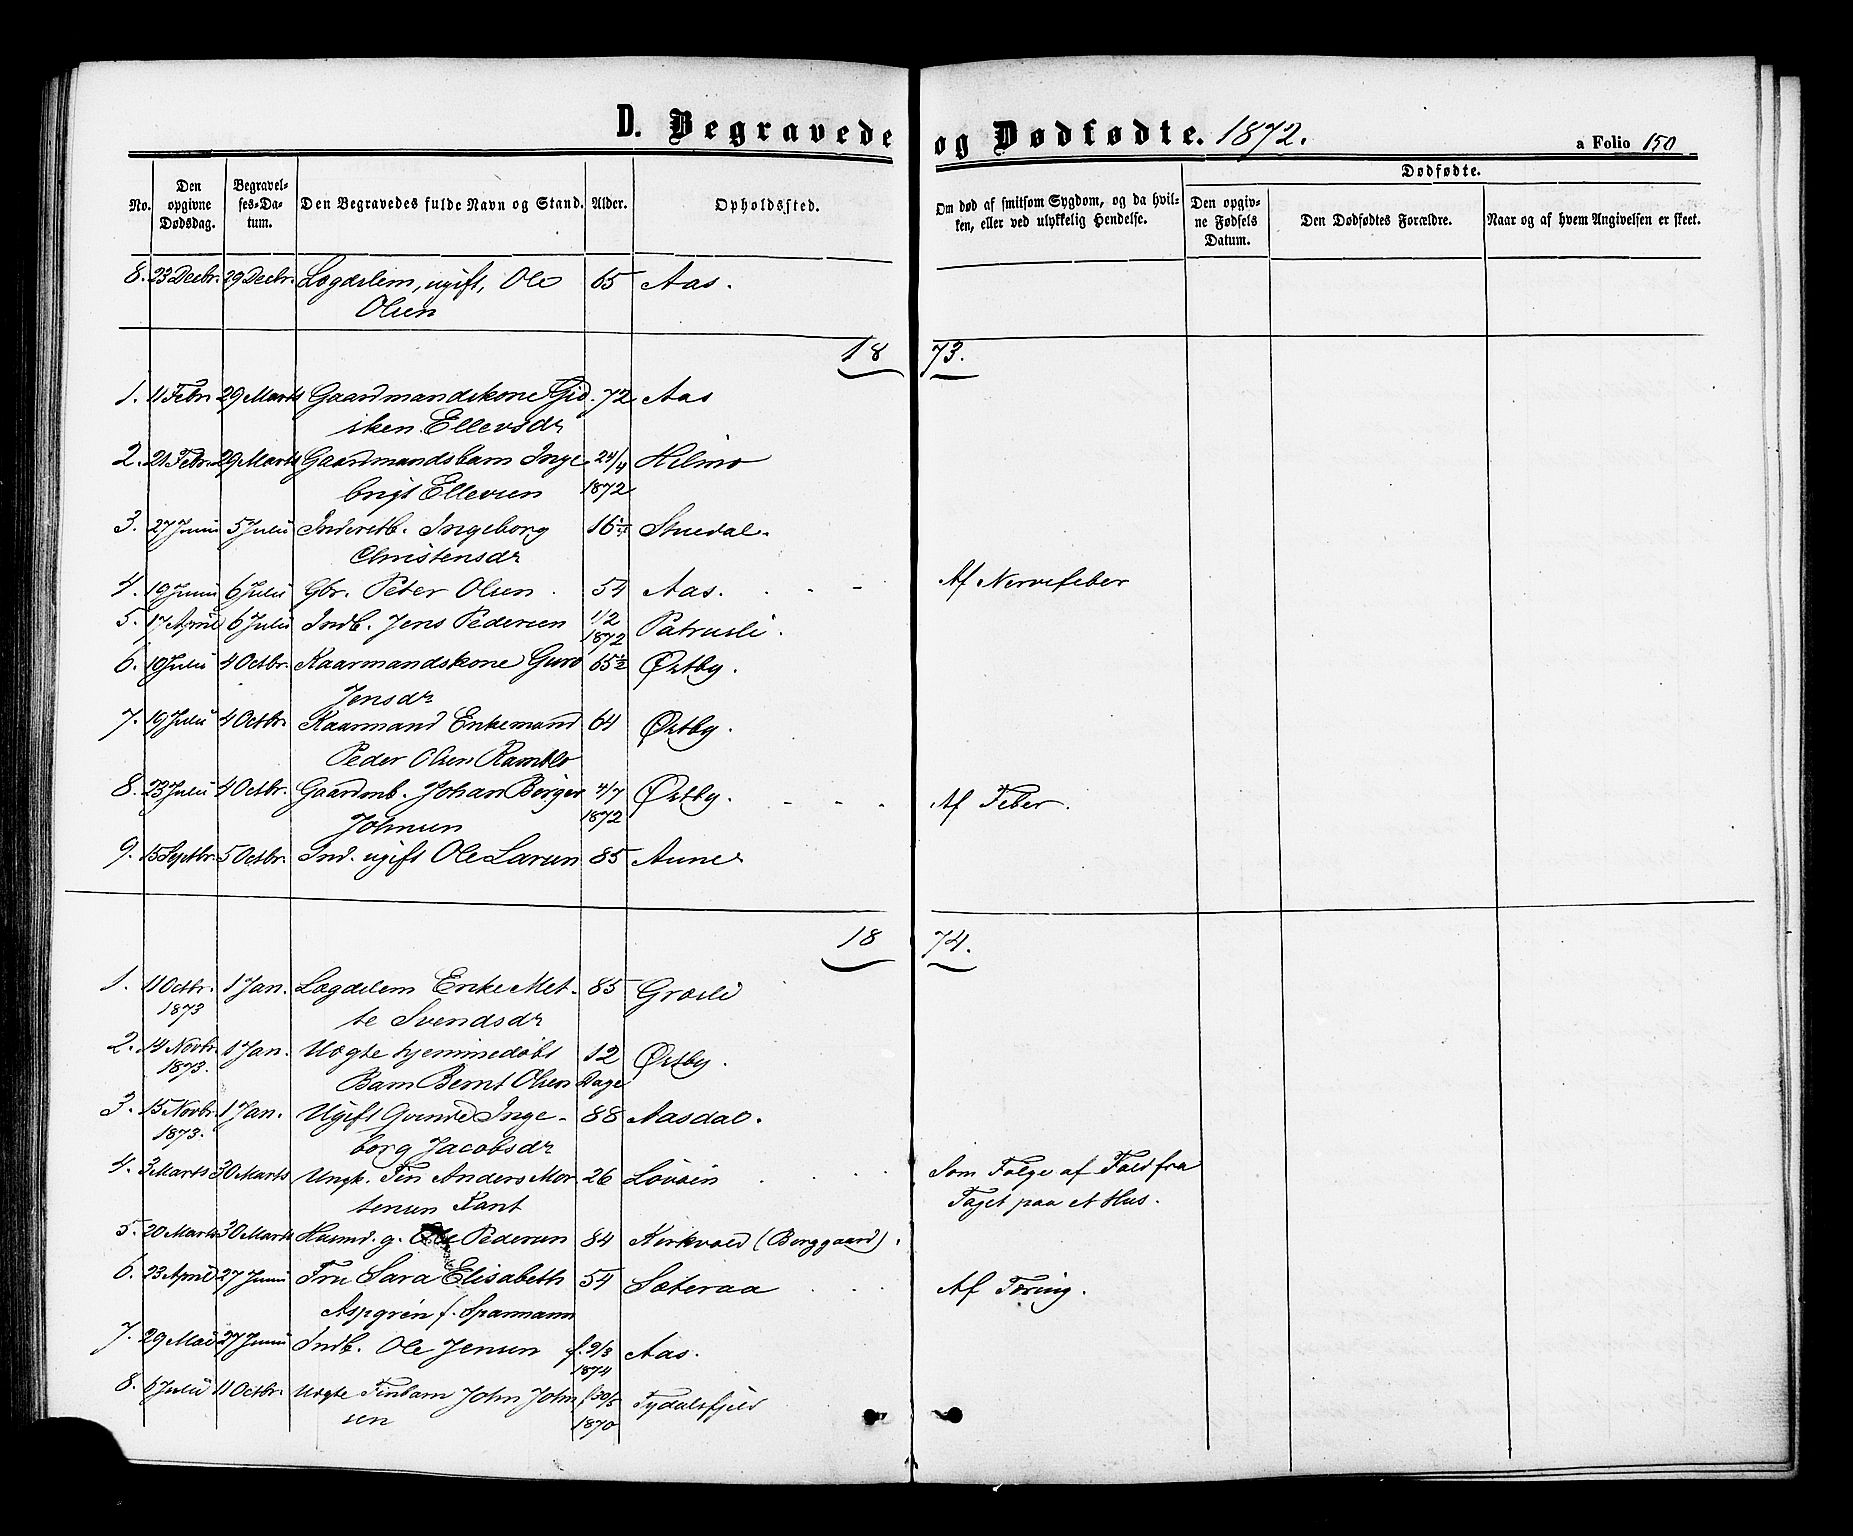 D. Begravede og Dødfødte. 1872.
a Folio 150
No.
Den opgivne Dødsdag.
Begravelses-Datum.
Den Begravedes fulde Navn og Stand.
Alder.
Opholdssted.
Om død af smitsom Sygdom, og da hvilken, eller ved ulykkelig Hendelse.
Dødfødte.
Den opgivne Fødsels Datum.
Den Dødfødtes Forældre.
Naar og af hvem Angivelsen er skeet.
8. 23 Decbr. 29 Decbr. Lægdslem, ugift, Ole 65 Aas.
Olsen
1873.
1. 11 Febr 29 Marts Gaardmandskone Gid 72 Aas
sken Ellevsdr
2. 21 Febr. 29 Marts Gaardmandsbarn Inge 24/4 Hilmo
brigt Ellevsen 1872
3. 27 Juni 5 Julii Inderstb. Ingeborg 16 Stuedal.
Christensdr
4. 19 Juni 6 Julii Gbr. Peter Olsen 54 Aas. - - Af Nervefeber
5. 17 April 6 Julii Indb. Jens Pedersen 1/2 Patrusli.
1872
6. 10 Julii 4 Octbr. Kaarmandskone Guro 65½ Østby.
Jensdr
7. 19 Julii 4 Octbr. Kaarmand Enkemand 64 Østby.
Peder Olsen Ramblo
8. 23 Julii 4 Octbr. Gaardmb. Johan Birger 4/7 Østby. - - - Af Feber.
Johnsen 1872
9. 15 Septbr. 5 Octbr. Ind. ugift Ole Larsen 85 Aune
1874.
1. 11 Octbr. 1 Jan. Lægdslem Enke Met- 85 Græsli
1873 te Svendsdr
2. 14 Novbr. 1 Jan. Uægte hjemmedøbt 12 Østby.
1873. Barn Bernt Olsen Dage
3. 15 Novbr. 1 Jan. Ugift Qvinde Inge- 88 Aasdal.
1873. borg Jacobsdr
4. 3 Marts 30 Marts Ungk. Fin Anders Mor 26 Løvøien . . . Som Følge af Fald fra
tensen Fant Taget paa et Hus.
5. 20 Marts 30 Marts Husmd. g. Ole Pedersen 84 Kirkvold (Berggaard).
6. 23 April 27 Juni Fru Sara Elisabeth 54 Sæteraa . . . Af Tæring.
Aspgrén f. Sparmann
7. 29 Mai 27 Juni Indb. Ole Jensen f. 9/3 Aas.
1874
8. 6 Julii 11 Octbr. Uægte Finbarn John John f. 30/5 Tydalsfjeld
sen 1870